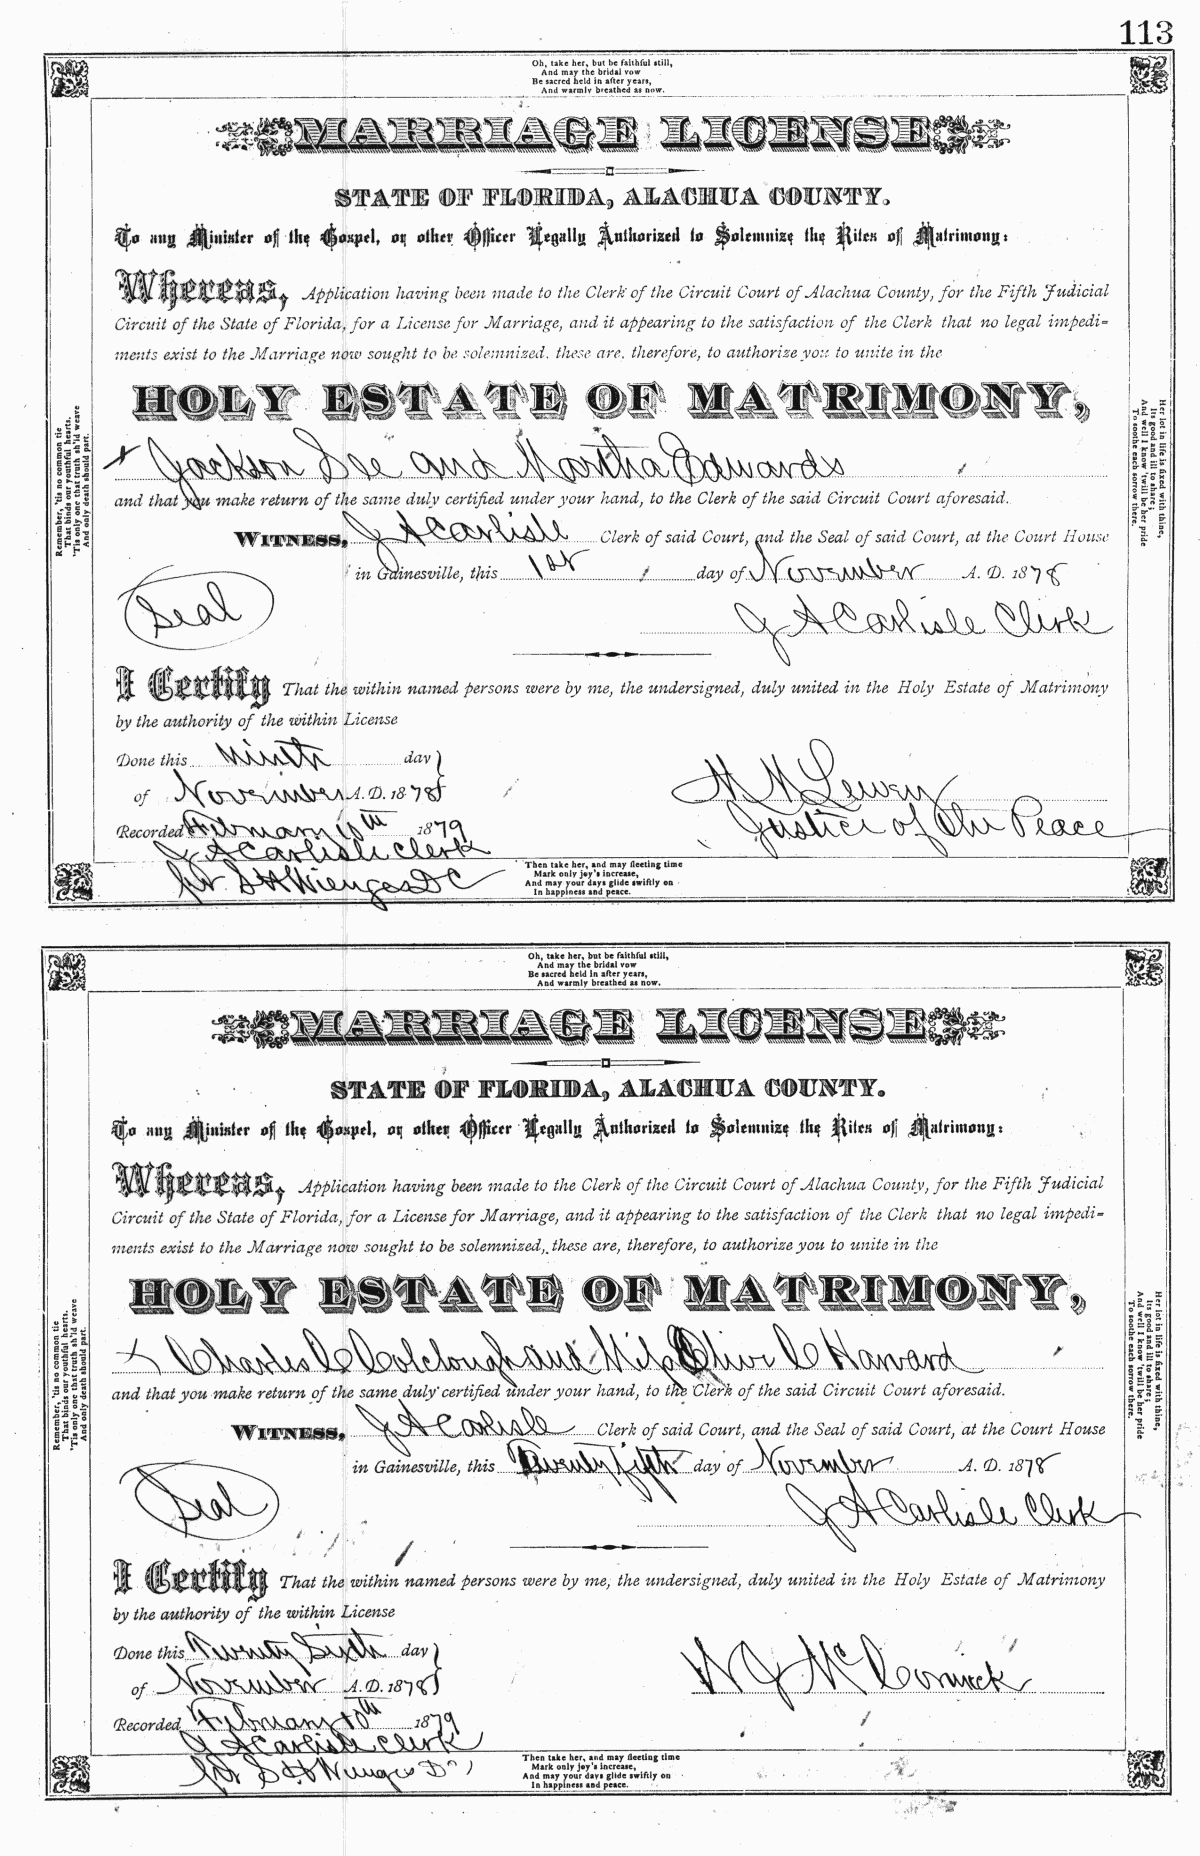 113
Oh, take her, but be faithful still,
And may the bridal vow
Be sacred held in after years,
And warmly breathed as now.
MARRIAGE LICENSE
STATE OF FLORIDA, ALACHUA COUNTY.
To any Minister of the Gospel, or other Officer Legally Authorized to Solemnize the Rites of Matrimony:
Whereas, Application having been made to the Clerk of the Circuit Court of Alachua County, for the Fifth Judicial
Circuit of the State of Florida, for a License for Marriage, and it appearing to the satisfaction of the Clerk that no legal impedi=
ments exist to the Marriage now sought to be solemnized, these are, therefore, to authorize you to unite in the
HOLY ESTATE OF MATRIMONY,
Jackson Lee and Martha Edwards
and that you make return of the same duly certified under your hand, to the Clerk of the said Circuit Court aforesaid.
WITNESS, J A Carlisle Clerk of said Court, and the Seal of said Court, at the Court House
in Gainesville, this 1st day of November A. D. 1878
Seal
J A Carlisle Clerk
I Certify That the within named persons were by me, the undersigned, duly united in the Holy Estate of Matrimony
by the authority of the within License
Done this Ninth day
of November A. D. 1878
Recorded February 1879
J A Carlisle Clerk
for S H Wienges D C
M Lewey
Justice of the Peace
Remember, 'tis no common tie
That binds our youthful hearts,
'Tis only one that truth sh'ld weave
And only death should part.
Her lot in life is fixed with thine,
Its good and ill to share;
And well I know 'twill be her pride
To soothe each sorrow there.
Then take her, and may fleeting time
Mark only joy's increase,
And may your days glide swiftly on
In happiness and peace.
Oh, take her, but be faithful still,
And may the bridal vow
Be sacred held in after years,
And warmly breathed as now.
MARRIAGE LICENSE
STATE OF FLORIDA, ALACHUA COUNTY.
To any Minister of the Gospel, or other Officer Legally Authorized to Solemnize the Rites of Matrimony:
Whereas, Application having been made to the Clerk of the Circuit Court of Alachua County, for the Fifth Judicial
Circuit of the State of Florida, for a License for Marriage, and it appearing to the satisfaction of the Clerk that no legal impedi=
ments exist to the Marriage now sought to be solemnized, these are, therefore, to authorize you to unite in the
HOLY ESTATE OF MATRIMONY,
Charles C Colclough and Miss Olive C Harvard
and that you make return of the same duly certified under your hand, to the Clerk of the said Circuit Court aforesaid.
WITNESS, J A Carlisle Clerk of said Court, and the Seal of said Court, at the Court House
in Gainesville, this Twenty fifth day of November A. D. 1878
Seal
J A Carlisle Clerk
I Certify That the within named persons were by me, the undersigned, duly united in the Holy Estate of Matrimony
by the authority of the within License
Done this Twenty Sixth day
of November A. D. 1878
Recorded February 10th 1879
J A Carlisle Clerk
for S H Wienges D
W J McCormick
Remember, 'tis no common tie
That binds our youthful hearts,
'Tis only one that truth sh'ld weave
And only death should part.
Her lot in life is fixed with thine,
Its good and ill to share;
And well I know 'twill be her pride
To soothe each sorrow there.
Then take her, and may fleeting time
Mark only joy's increase,
And may your days glide swiftly on
In happiness and peace.